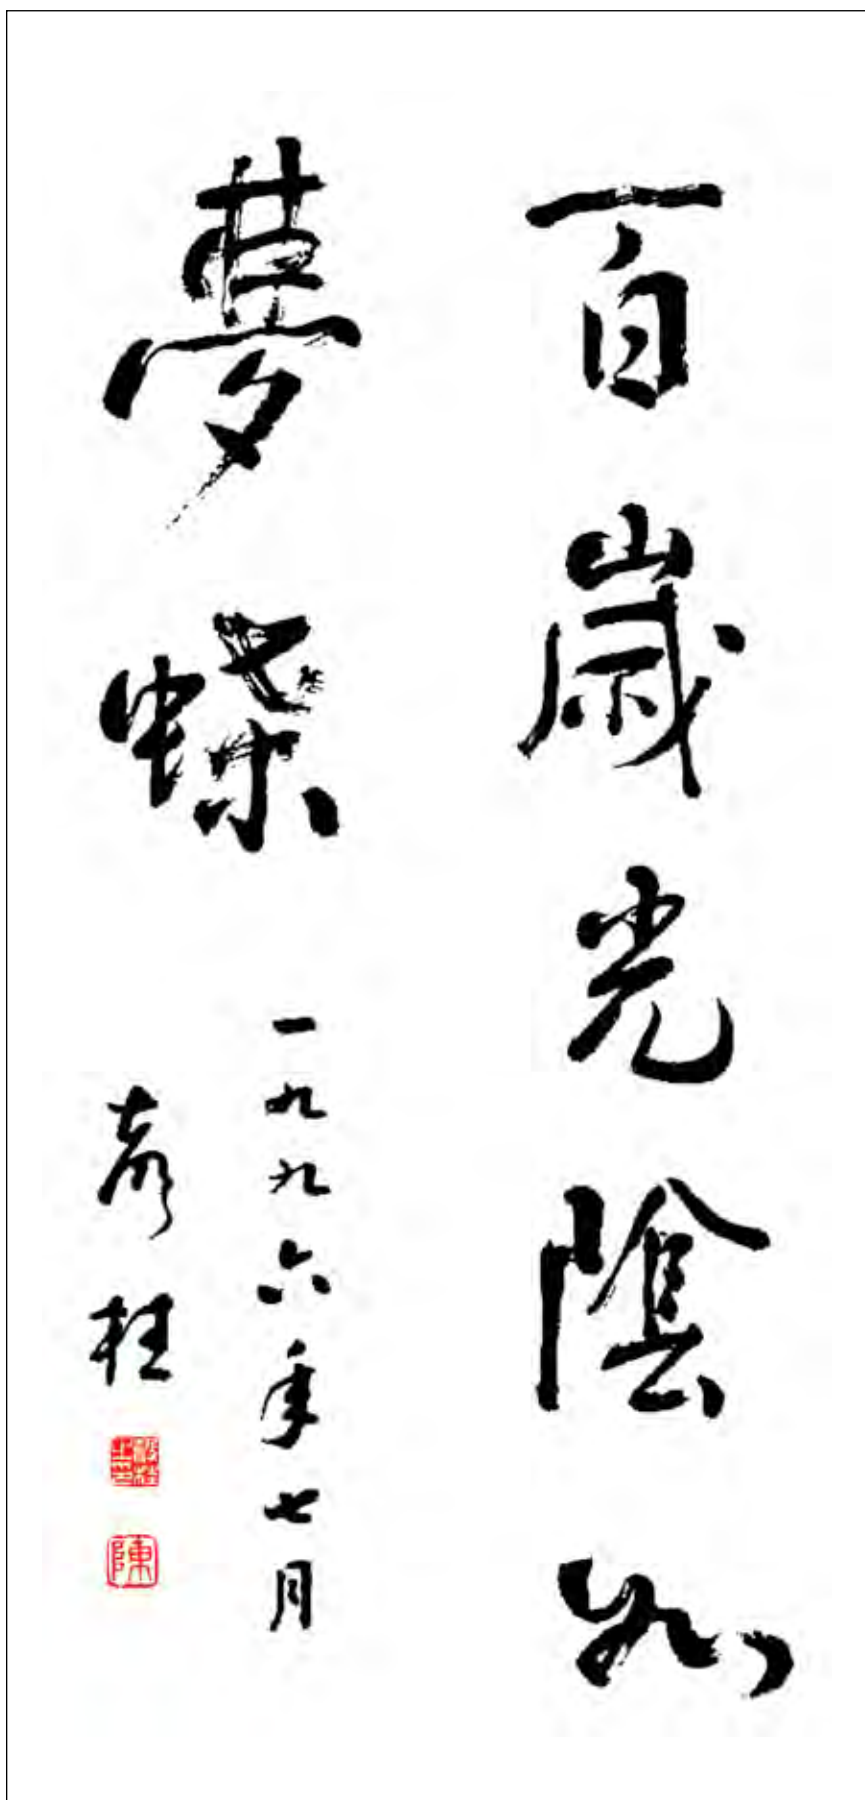 百歲光陰如
夢蝶
一九九六年七月
陳